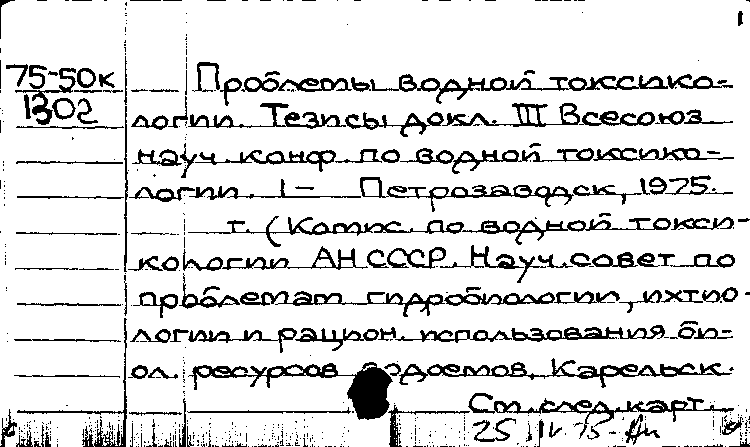 1
75-50к Проблемы водной токсико-
1302 логии. Тезисы докл. III Всесоюз.
науч. конф. по водной токсико-
логии. 1- Петрозаводск, 1975.
т. (Комис. по водной токси-
кологии АН СССР. Науч. совет по
проблемам гидробиологии, ихтио-
логии и рацион. использования би-
ол. ресурсов водоемов. Карельск.
См. след. карт.
25 IV 75